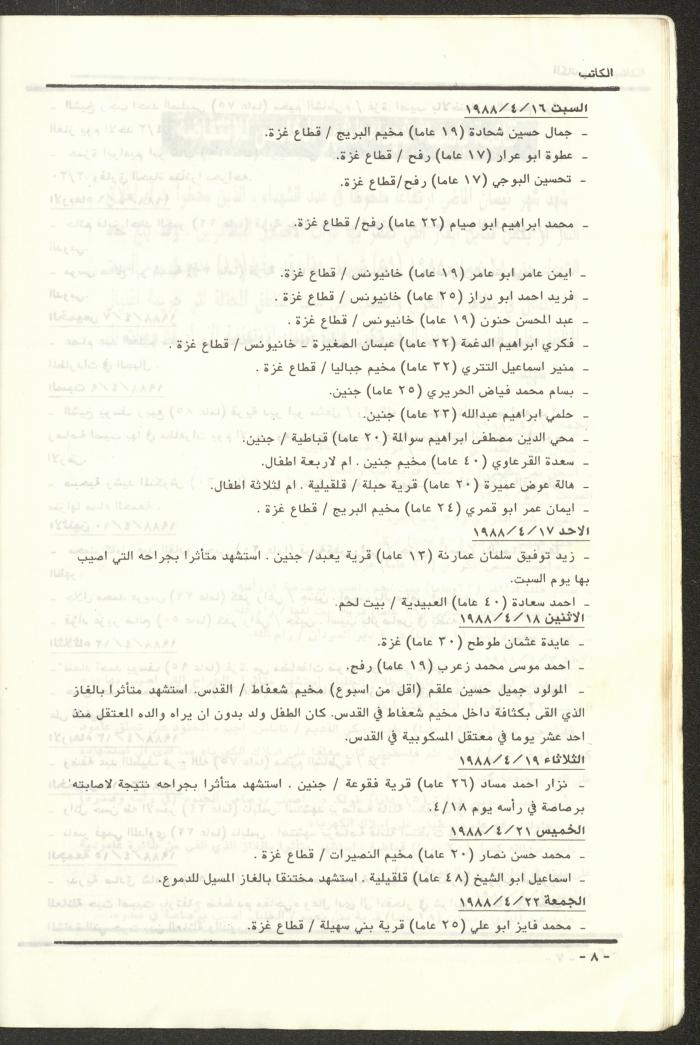 الكاتب
السبت ١٩٨٨/٤/١٦
- جمال حسين شحادة (١٩ عاما) مخيم البريج / قطاع غزة.
- عطوة ابو عرار (١٧ عاما) رفح / قطاع غزة.
- تحسين البوجي (١٧ عاما) رفح/قطاع غزة.
- محمد ابراهيم ابو صيام (٢٢ عاما) رفح/ قطاع غزة.
- ايمن عامر ابو عامر (١٩ عاما) خانيونس / قطاع غزة.
- فريد احمد ابو دراز (٢٥ عاما) خانيونس / قطاع غزة .
- عبد المحسن حنون (١٩ عاما) خانيونس / قطاع غزة .
- فكري ابراهيم الدغمة (٢٢ عاما) عبسان الصغيرة - خانيونس / قطاع غزة .
- منير اسماعيل التتري (٣٢ عاما) مخيم جباليا / قطاع غزة .
- بسام محمد فياض الحريري (٢٥ عاما) جنين.
- حلمي ابراهيم عبدالله (٢٣ عاما) جنين.
- محي الدين مصطفى ابراهيم سوالمة (٢٠ عاما) قباطية / جنين.
- سعدة القرعاوي (٤٠ عاما) مخيم جنين . ام لاربعة اطفال.
- هالة عوض عميرة (٢٠ عاما) قرية حبلة / قلقيلية . ام لثلاثة اطفال.
- ايمان عمر ابو قمري (٢٤ عاما) مخيم البريج / قطاع غزة .
الاحد ١٩٨٨/٤/١٧
- زيد توفيق سلمان عمارنة (١٣ عاما) قرية يعبد/ جنين . استشهد متأثرا بجراحه التي اصيب
بها يوم السبت.
- احمد سعادة (٤٠ عاما) العبيدية / بيت لحم.
الاثنين ١٩٨٨/٤/١٨
- عايدة عثمان طوطح (٣٠ عاما) غزة.
- احمد موسى محمد زعرب (١٩ عاما) رفح.
- المولود جميل حسين علقم (اقل من اسبوع) مخيم شعفاط / القدس. استشهد متأثرا بالغاز
الذي القى بكثافة داخل مخيم شعفاط في القدس. كان الطفل ولد بدون ان يراه والده المعتقل منذ
احد عشر يوما في معتقل المسكوبية في القدس.
الثلاثاء ١٩٨٨/٤/١٩
- نزار احمد مساد (٢٦ عاما) قرية فقوعة / جنين . استشهد متأثرا بجراحه نتيجة لاصابته
برصاصة في رأسه يوم ٤/١٨.
الخميس ١٩٨٨/٤/٢١
- محمد حسن نصار (٢٠ عاما) مخيم النصيرات / قطاع غزة .
- اسماعيل ابو الشيخ (٤٨ عاما) قلقيلية . استشهد مختنقا بالغاز المسيل للدموع.
الجمعة ١٩٨٨/٤/٢٢
- محمد فايز ابو علي (٢٥ عاما) قرية بني سهيلة / قطاع غزة.
- ٨ -